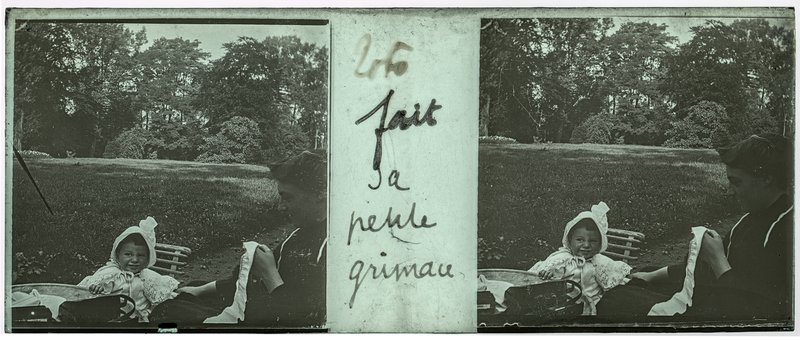 Loto
fait
sa
petite
grimace